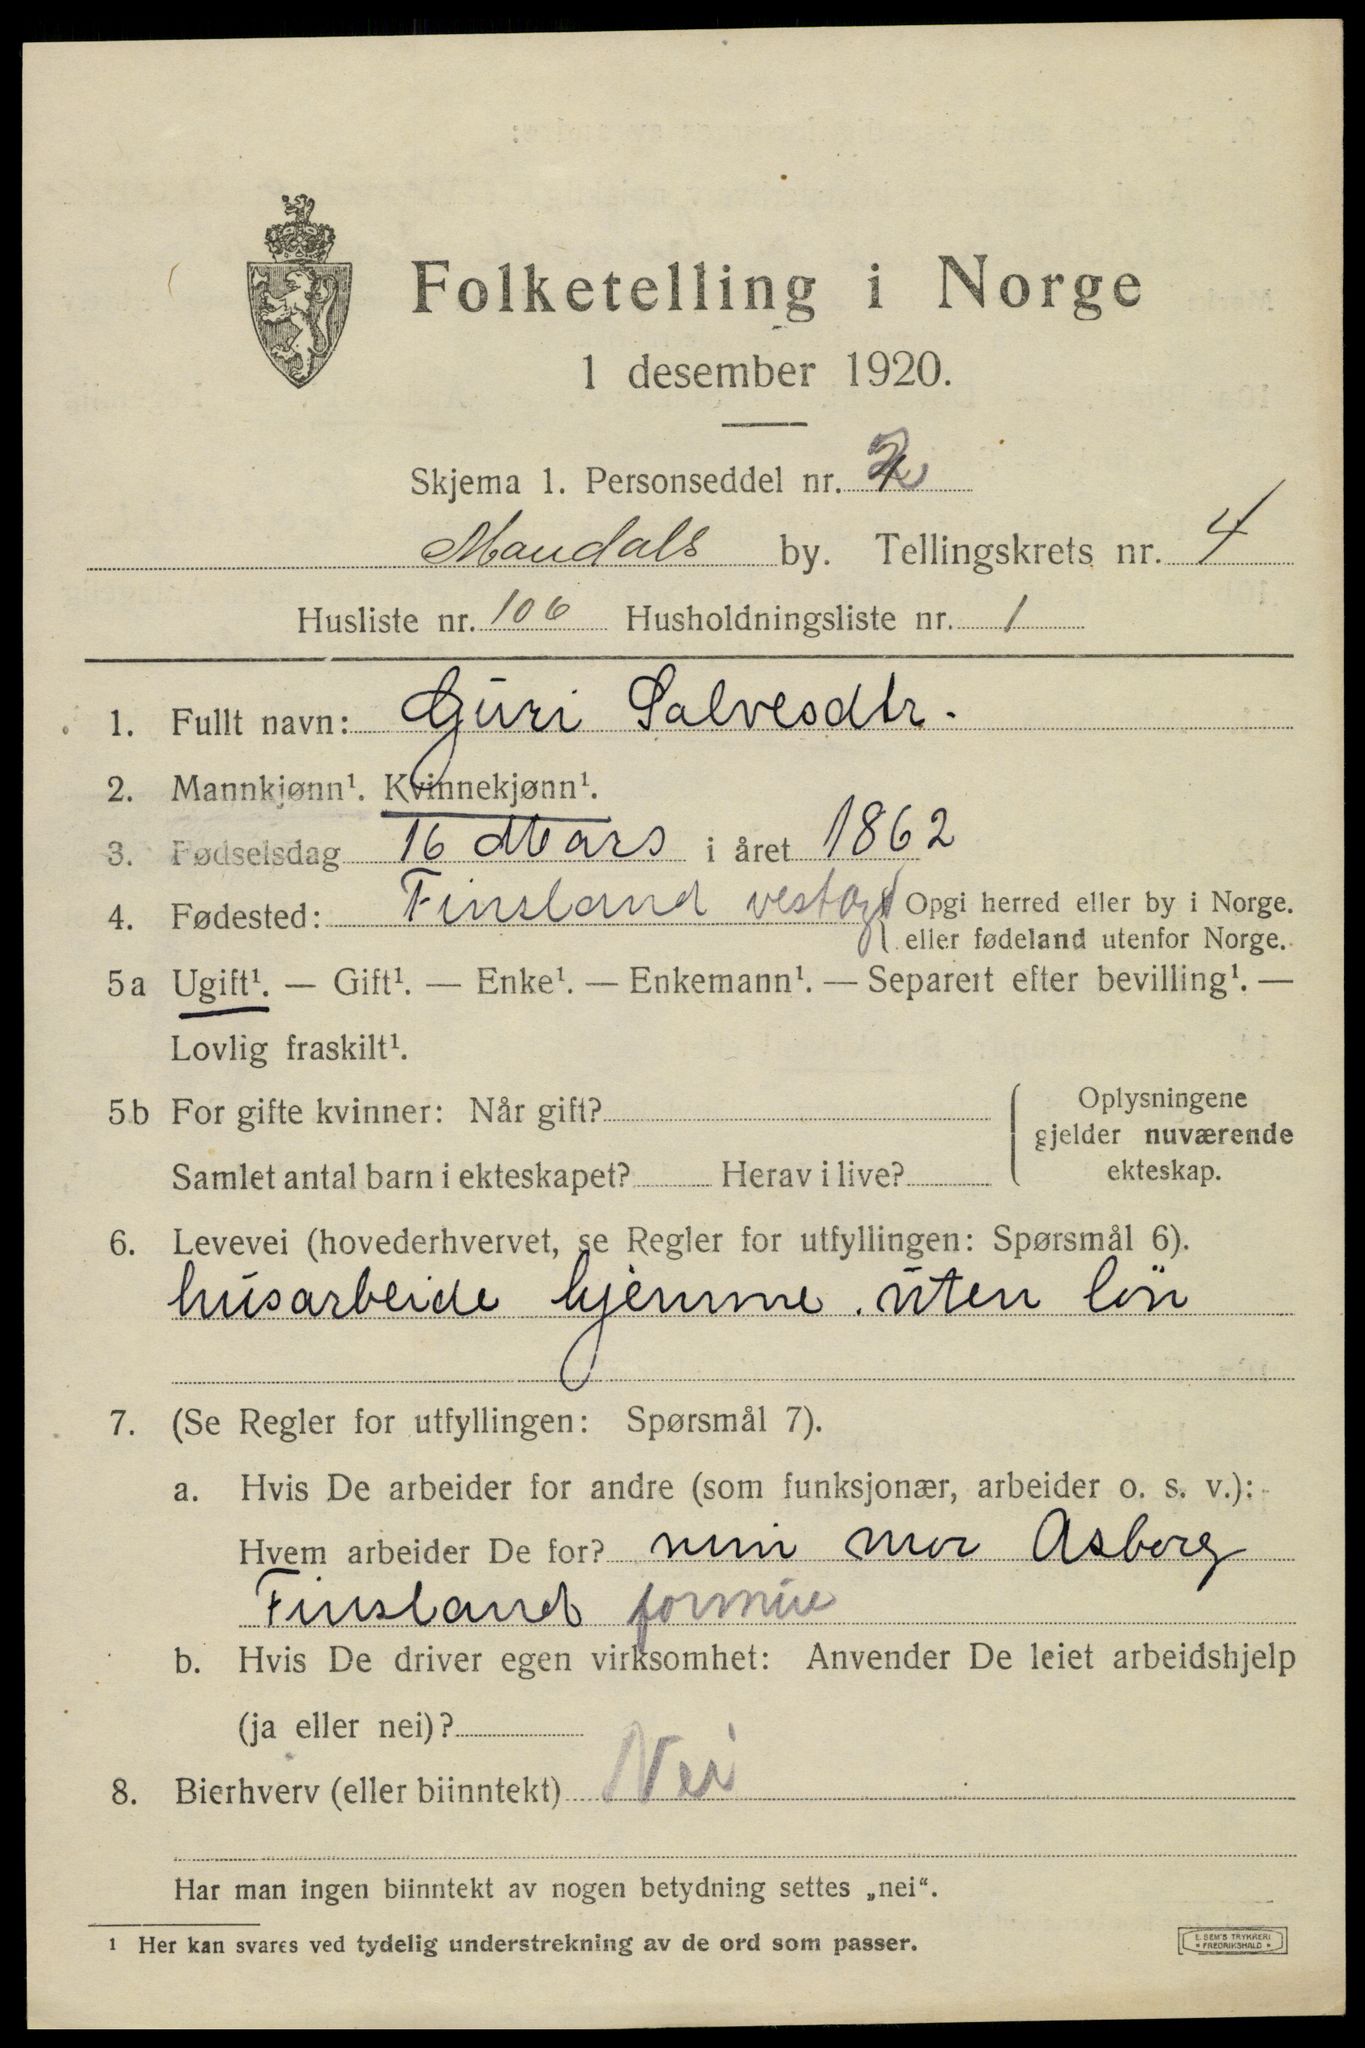 Folketelling i Norge
1 desember 1920.
Skjema 1. Personseddel nr. 2
Mandals by. Tellingskrets nr. 4
Husliste nr. 106 Husholdningsliste nr. 1
1. Fullt navn: Guri Salvesdtr.
2. Mannkjønn¹. Kvinnekjønn¹.
3. Fødselsdag 16 Mars i året 1862
4. Fødested: Finsland vestagd Opgi herred eller by i Norge.
eller fødeland utenfor Norge.
5a Ugift¹. — Gift¹. — Enke¹. — Enkemann¹. — Separert efter bevilling¹. —
Lovlig fraskilt¹.
5b For gifte kvinner: Når gift?
Oplysningene
gjelder nuværende
ekteskap.
Samlet antal barn i ekteskapet? Herav i live?
6. Levevei (hovederhvervet, se Regler for utfyllingen: Spørsmål 6).
husarbeide hjemme. uten løn
7. (Se Regler for utfyllingen: Spørsmål 7).
a. Hvis De arbeider for andre (som funksjonær, arbeider o. s. v.):
Hvem arbeider De for? min mor Asborg
Finsland
b. Hvis De driver egen virksomhet: Anvender De leiet arbeidshjelp
(ja eller nei)?
8. Bierhverv (eller biinntekt) Nei
Har man ingen biinntekt av nogen betydning settes „nei“.
¹ Her kan svares ved tydelig understrekning av de ord som passer.
E. SEM'S TRYKKERI
* FREDRIKSHALD *